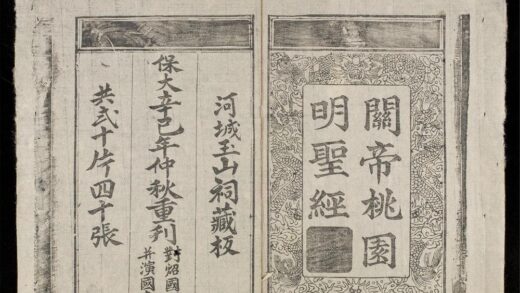 關帝桃園
明聖經
河城玉山祠藏板
保大辛巳年仲秋重刊
對炤國
并演國
共弍十片四十張